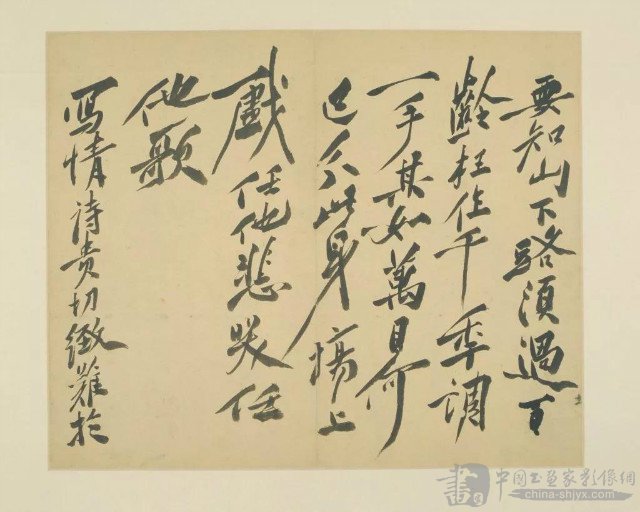 要知山下路須過百
齡枉作千年調
一手其如萬目何
已分此身場上
戲任他悲哭任
他歌
寫情詩貴切緻難於
書
中國书画家影像網
china-shjyx.com